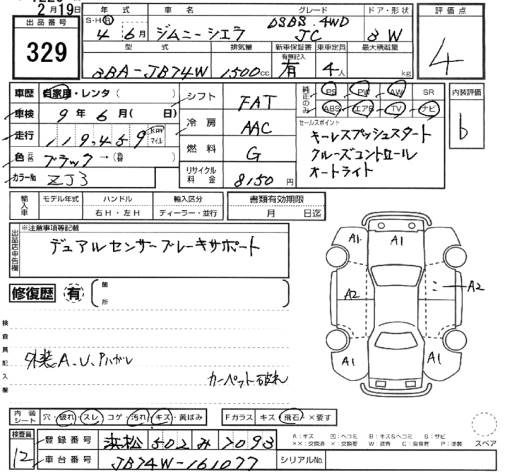 2月19日
出品番号
329
年式 車名 グレード ドア・形状
S・H・R 4年6月 ジムニーシエラ DSBS.4WD JC 3W
型式 排気量 新車保証書 有無記入 車歴定員 最大積載量
3BA-JB74W 1500cc 有 4人 kg
評価点
4
車歴 自家用・レンタ( )
車検 9年6月( 日)
走行 119,459 km マイル
色 元色 ブラック→(替)
カラーNo ZJ3
シフト FAT
冷房 AAC
燃料 G
リサイクル料金 8150円
純正のみ PS PW AW SR
ABS エアB TV ナビ
セールスポイント
キーレスプッシュスタート
クルーズコントロール
オートライト
内装評価
b
輸入車 モデル年式 ハンドル 右H・左H 輸入区分 ディーラー・並行
書類有効期限
月 日迄
出品店申告欄
※注意事項等記載
デュアルセンサーブレーキサポート
修復歴 有 箇所
検査員記入欄
外装A.U.アバレ
カーペット破れ
A1 A1 A1
A2 A2
A1 A1 A1
内装シート 穴・破れ・スレ コゲ・汚れ・キズ・黄ばみ
Fガラス キズ・飛石・×要す
検査員
12
登録番号 浜松 502 み 7093
車台番号 JB74W-161077 シリアルNo.
スペア